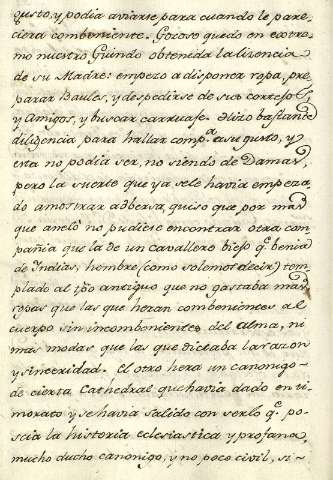 gusto, y podia aviarse para cuando le pare,
ciera combeniente. Gozoso quedo en extre,
mo nuestro Guindo obtenida la lizencia
de su Madre: empezo a disponer ropa, pre
parar Baules, y despedirse de sus
y Amigos, y buscar carruaje. Hizo bastante
diligencia para hallar comp.ª a su gusto, y
esta no podia ser, no siendo de Damas,
pero la suerte que ya sele havia empeza,
do amostrar adbersa, quiso que por mas
que anelò no pudiese encontrar otra com
pañia que la de un cavallero biejo q.e benia
de Indias, hombre (como solemos decir) tem,
plado al tpo antiguo que no gastaba mas
ropas que las que heran combenientes al
cuerpo sin incombenientes del alma, ni
mas modas que las que dictaba la razon
y sinceridad. El otro hera un canonigo
de cierta Cathedral que havia dado en ti
morato y se havia salido con serlo q.e po
seia la historia eclesiastica y profana,
mucho ducho canonigo, y no poco civil, si-